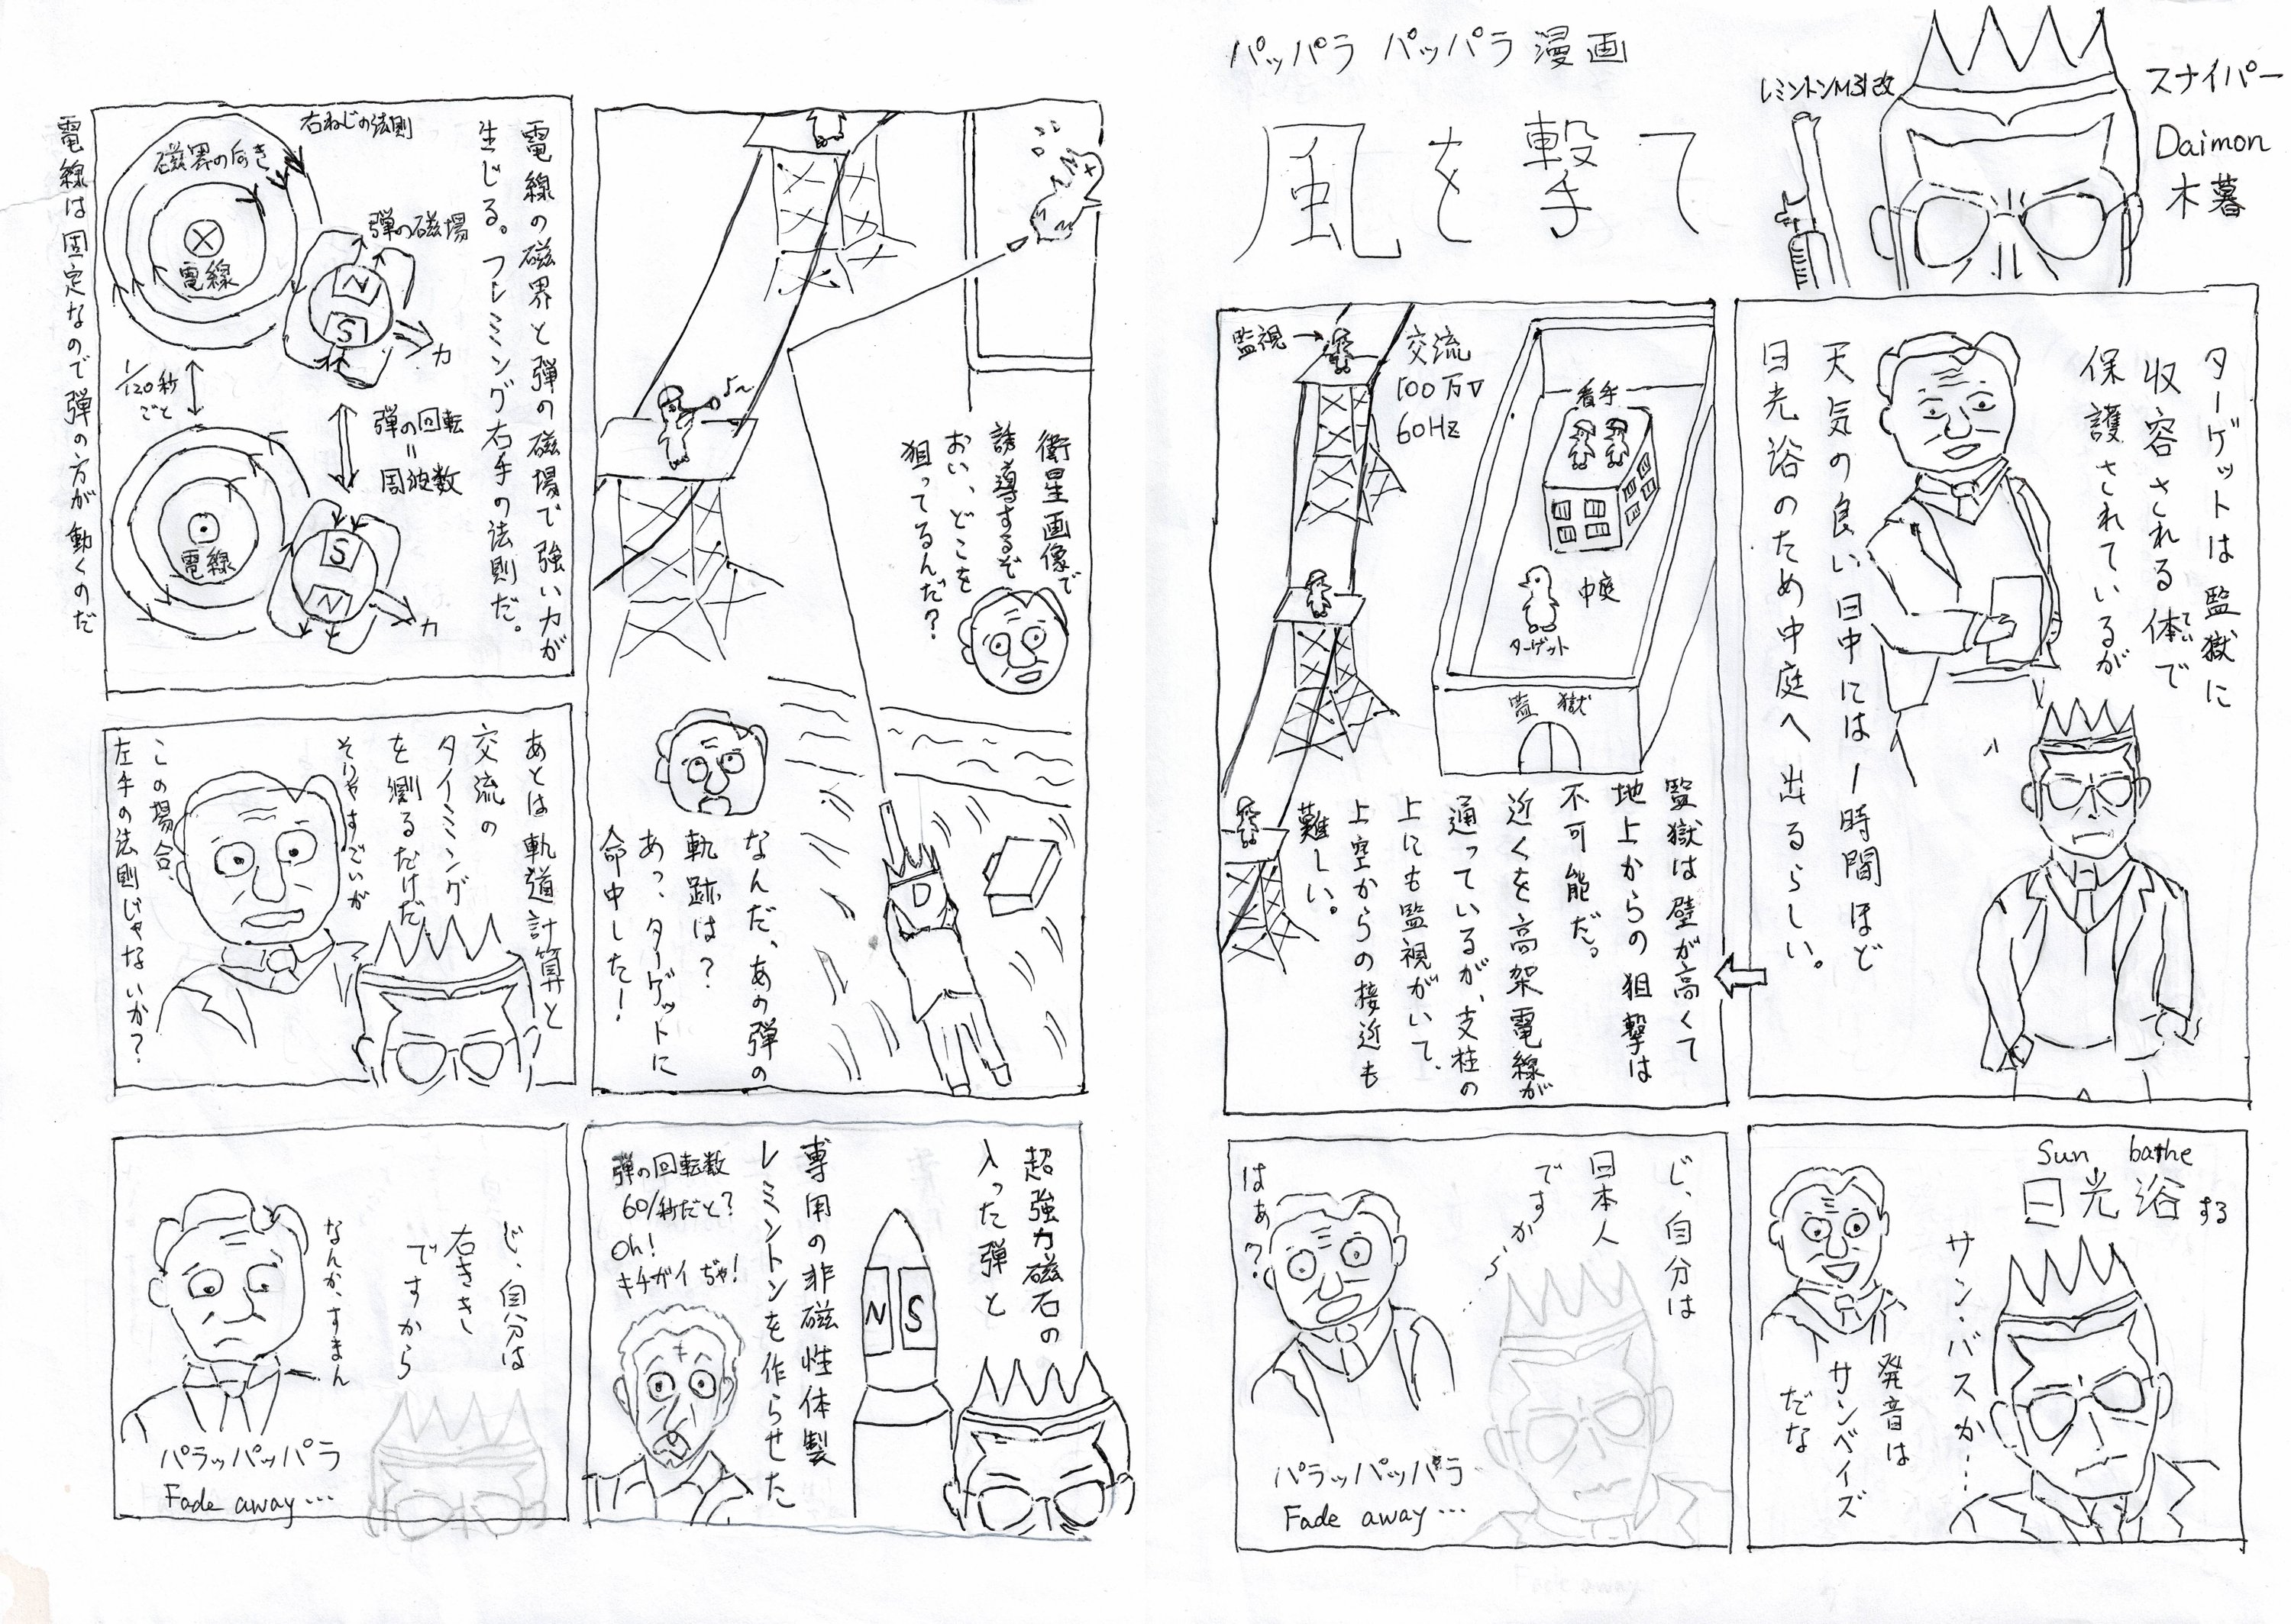 パッパラ パッパラ漫画
風を撃て
レミントンM31改
スナイパー
Daimon
木暮
ターゲットは監獄に
収容される体で
てい
保護されているが
天気の良い日中には1時間ほど
日光浴のため中庭へ出るらしい。
監視→
交流
100万V
60Hz
看守
中庭
ターゲット
監獄
監獄は壁が高くて
地上からの狙撃は
不可能だ。
近くを高架電線が
通っているが、支柱の
上にも監視がいて、
上空からの接近も
難しい。
Sun bathe
日光浴する
サン・バスか…
発音は
サンベイズ
だな
じ、自分は
日本人
ですから…
はあ?
パラッパッパラ
Fade away…
衛星画像で
誘導するぞ
おい、どこを
狙ってるんだ?
なんだ、あの弾の
軌跡は?
あっ、ターゲットに
命中した!
D
超強力磁石の
入った弾と
N S
専用の非磁性体製
レミントンを作らせた
弾の回転数
60/秒だと?
Oh!
キチガイぢゃ!
電線の磁界と弾の磁場で強い力が
生じる。フレミング右手の法則だ。
右ねじの法則
磁界の向き
電線
弾の磁場
N
S
力
1/120秒
ごと
弾の回転
=
周波数
電線
S
N
力
電線は固定なので弾の方が動くのだ
あとは軌道計算と
交流の
タイミング
を測るだけだ
そりゃすごいが
この場合、
左手の法則じゃないか?
じ、自分は
右きき
ですから
なんか、すまん
パラッパッパラ
Fade away…